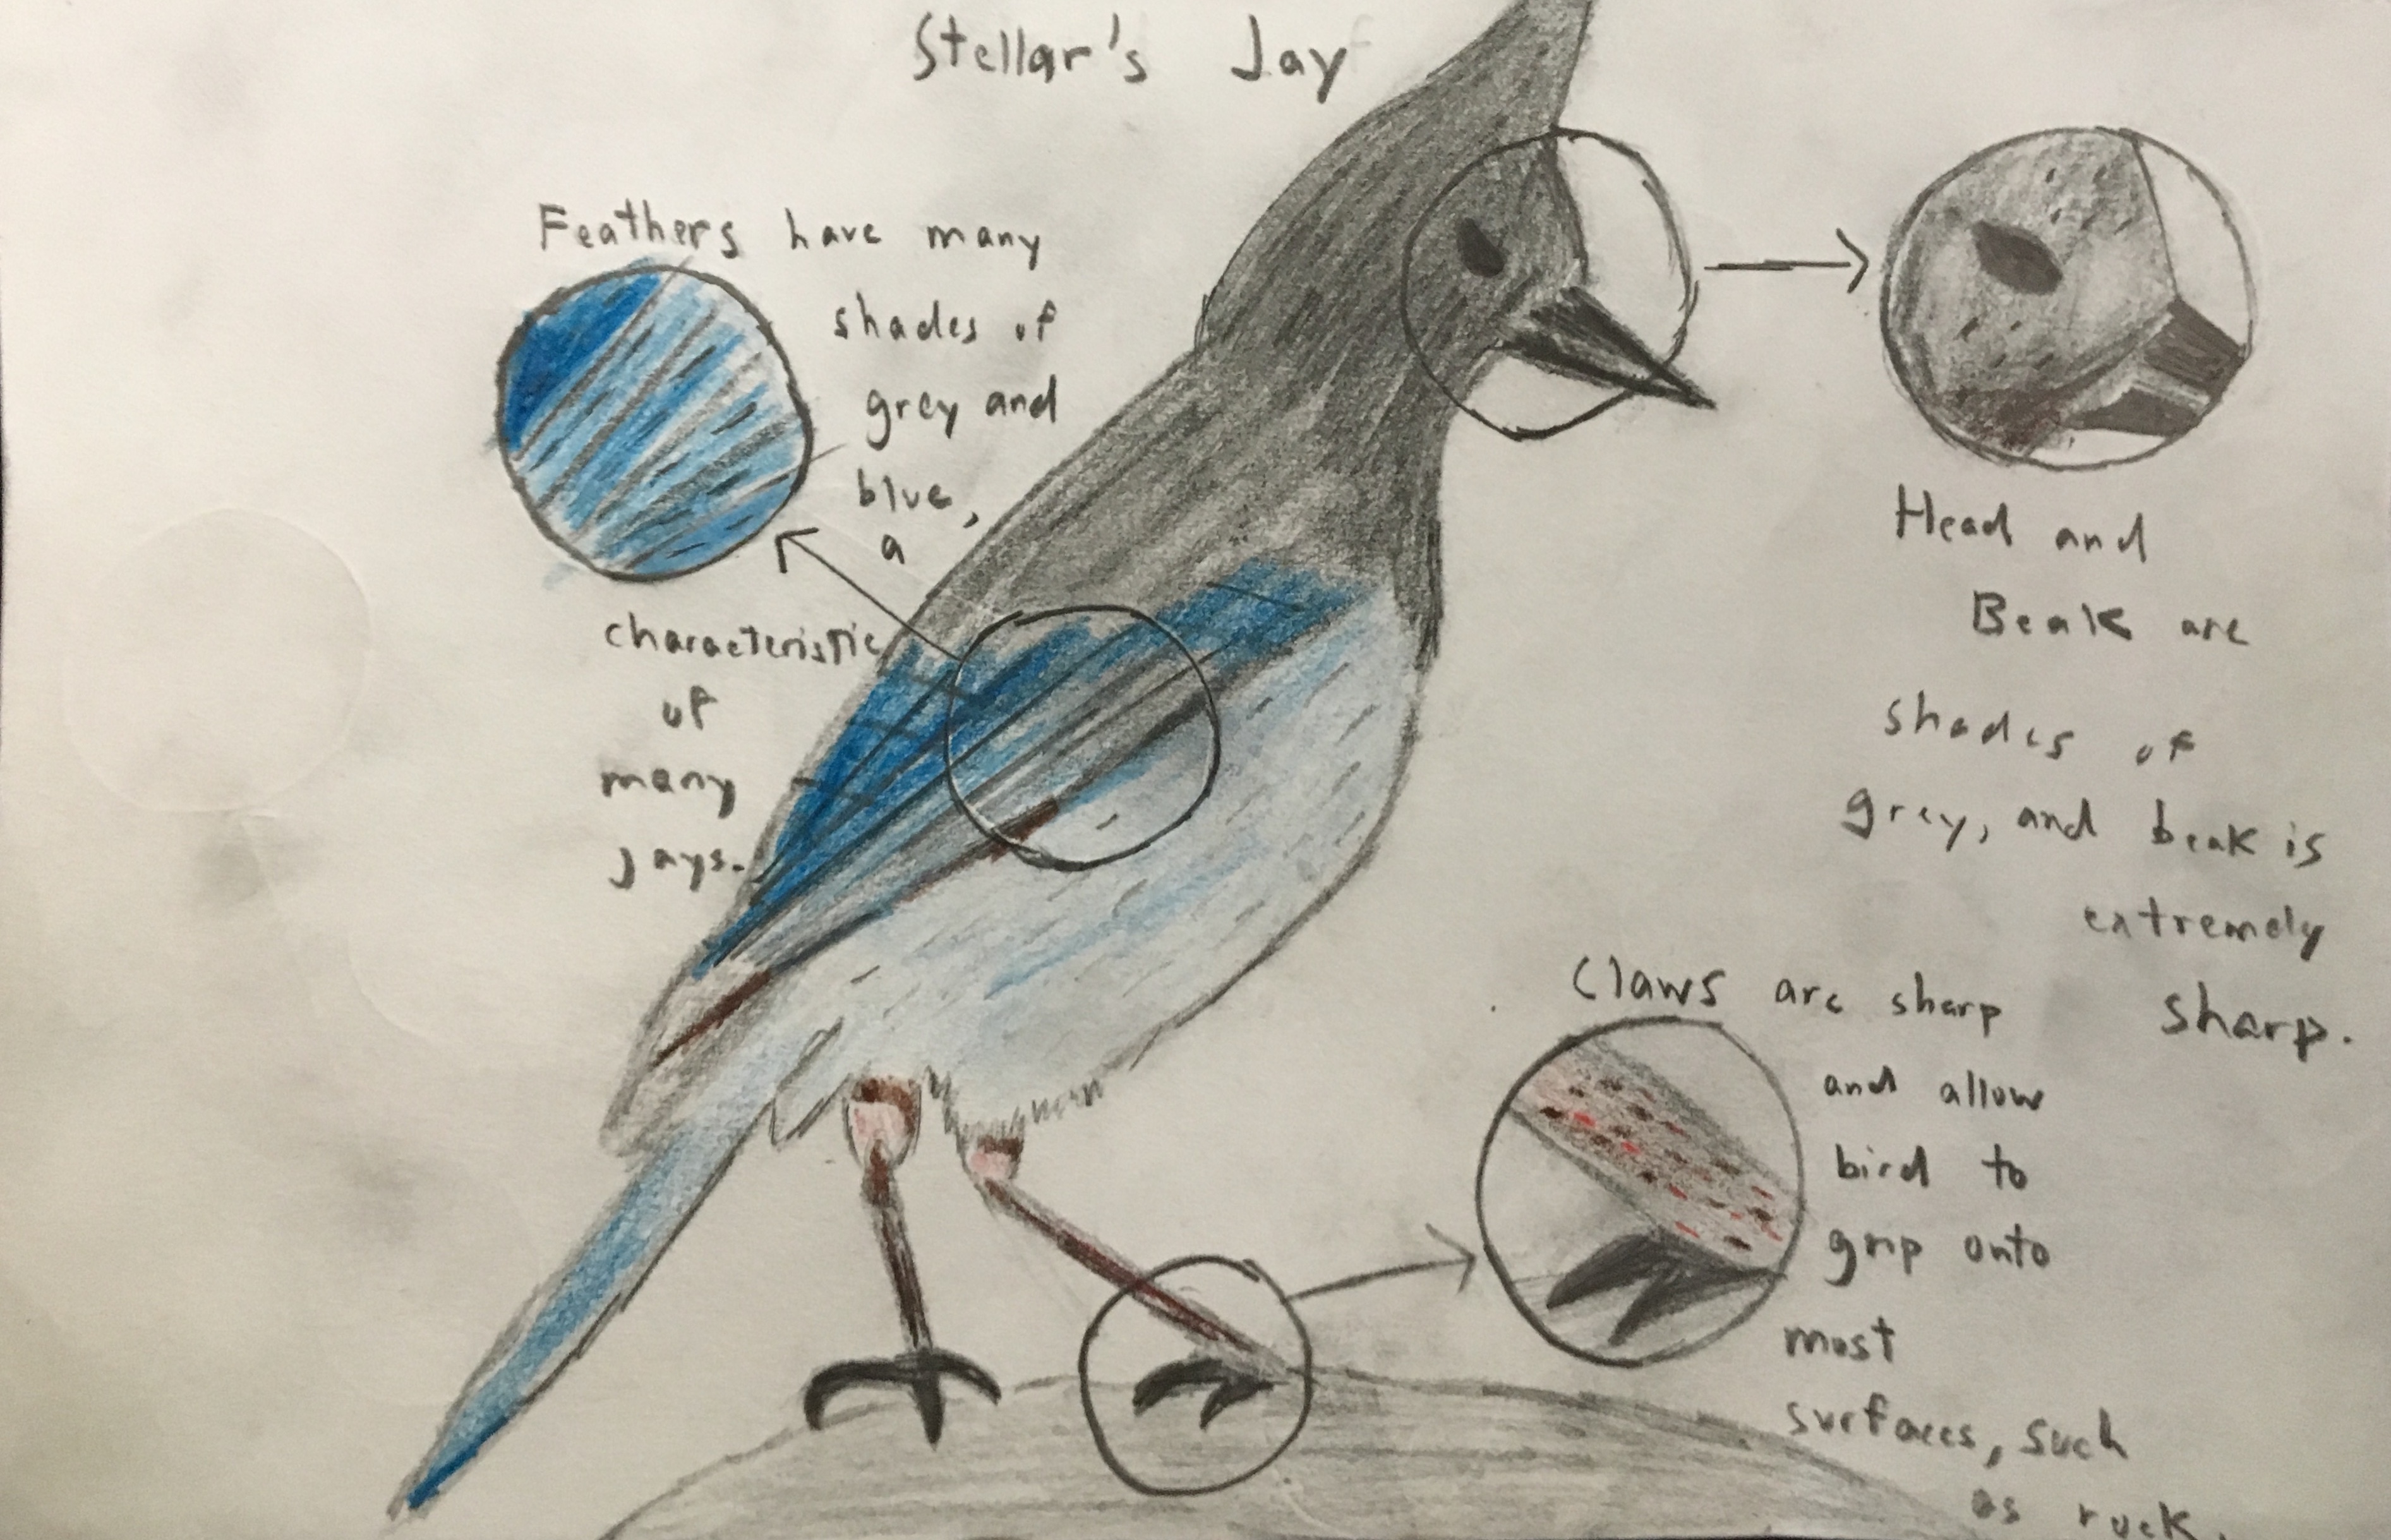 Stellar's Jay
Feathers have many
shades of
grey and
blue,
a
characteristic
of
many
jays.
Head and
Beak are
shades of
grey, and beak is
extremely
sharp.
Claws are sharp
and allow
bird to
grip onto
most
surfaces, such
as rock.